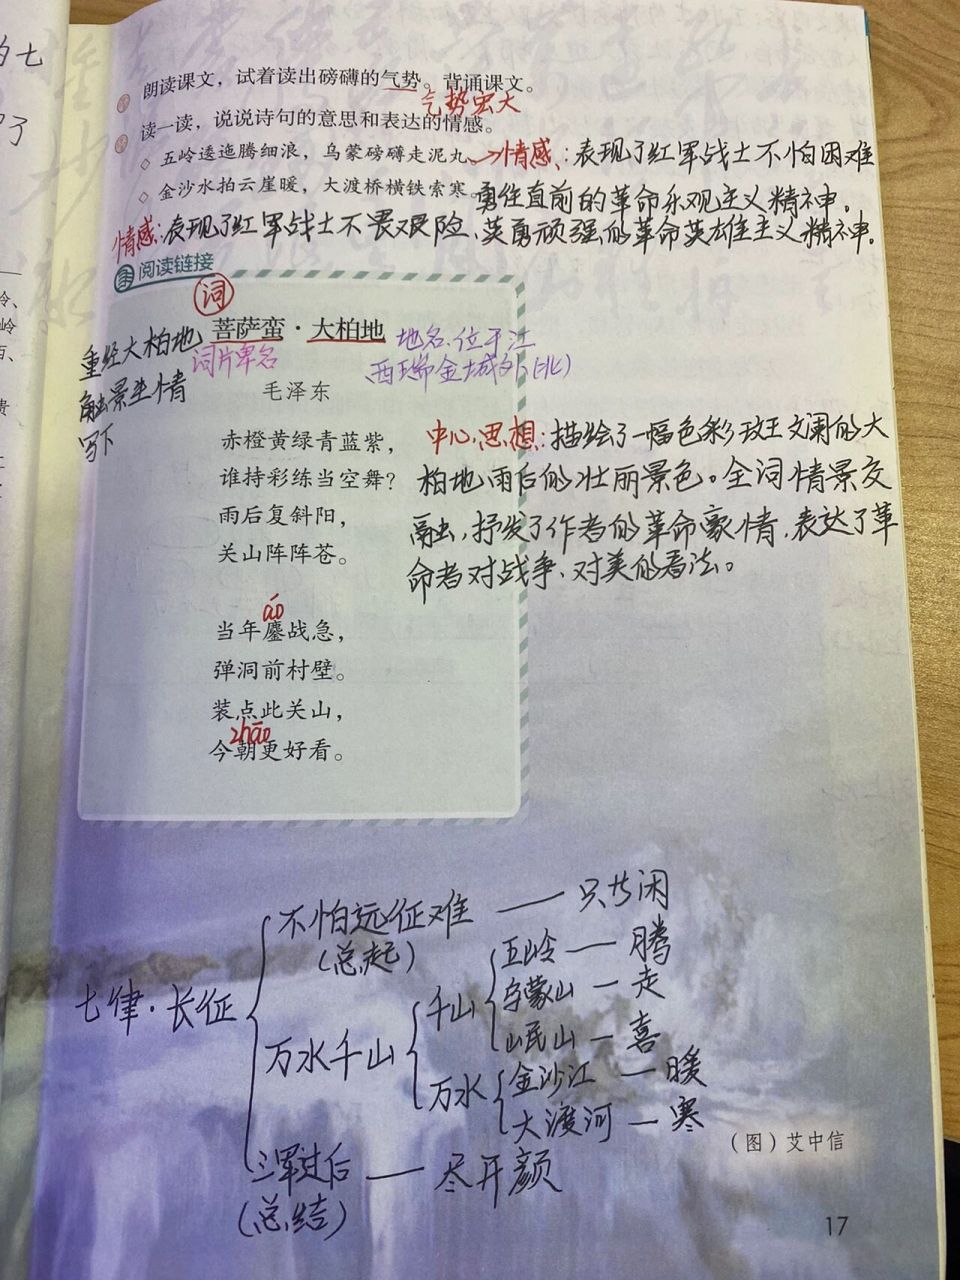 的七
了
朗读课文，试着读出磅礴的气势。背诵课文。
气势宏大
读一读，说说诗句的意思和表达的情感。
◇ 五岭逶迤腾细浪，乌蒙磅礴走泥丸。→情感：表现了红军战士不怕困难
◇ 金沙水拍云崖暖，大渡桥横铁索寒。勇往直前的革命乐观主义精神。
情感：表现了红军战士不畏艰险、英勇顽强的革命英雄主义精神。
阅读链接
词
菩萨蛮·大柏地
地名、位于江
西瑞金城外(北)
词片卑名
重经大柏地
触景生情
写下
毛泽东
赤橙黄绿青蓝紫，
谁持彩练当空舞？
雨后复斜阳，
关山阵阵苍。
中心思想：描绘了一幅色彩斑斓的大
柏地雨后的壮丽景色。全词情景交
融，抒发了作者的革命豪情，表达了革
命者对战争、对美的看法。
áo
当年鏖战急，
弹洞前村壁。
装点此关山，
zhāo
今朝更好看。
七律·长征
不怕远征难 — 只等闲
(总起)
万水千山
千山
五岭 — 腾
乌蒙山 — 走
岷山 — 喜
万水
金沙江 — 暖
大渡河 — 寒
三军过后 — 尽开颜
(总结)
（图）艾中信
17